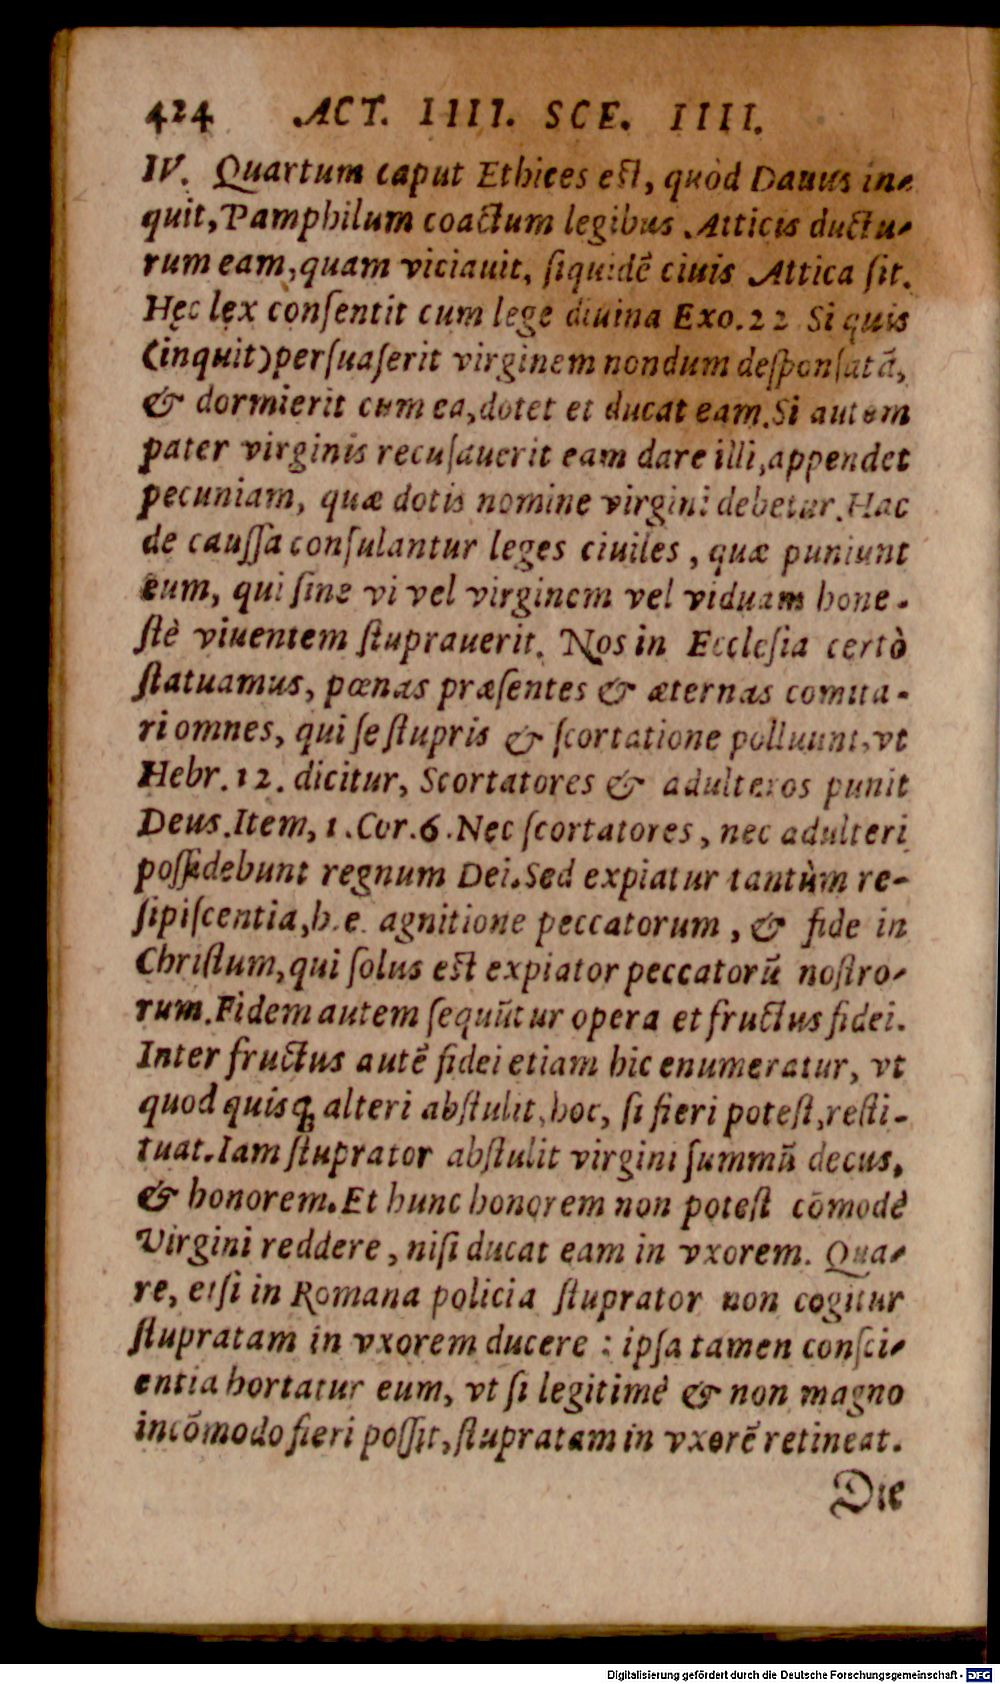 424 ACT. IIII. SCE. IIII.
IV. Quartum caput Ethices est, quòd Dauus in-
quit, Pamphilum coactum legibus Atticis ductu-
rum eam, quam viciauit, siquidē ciuis Attica sit.
Hęc lex consentit cum lege diuina Exo. 22 Si quis
(inquit) persuaserit virginem nondum desponsatā,
& dormierit cum ea, dotet et ducat eam. Si autem
pater virginis recusauerit eam dare illi, appendet
pecuniam, quæ dotis nomine virgini debetur. Hac
de caussa consulantur leges ciuiles, quæ puniunt
eum, qui sine vi vel virginem vel viduam hone-
stè viuentem stuprauerit. Nos in Ecclesia certò
statuamus, pœnas præsentes & æternas comita-
ri omnes, qui se stupris & scortatione polluunt, vt
Hebr. 12. dicitur, Scortatores & adulteros punit
Deus. Item, 1. Cor. 6. Nec scortatores, nec adulteri
possidebunt regnum Dei. Sed expiatur tantùm re-
sipiscentia, h. e. agnitione peccatorum, & fide in
Christum, qui solus est expiator peccatorū nostro-
rum. Fidem autem sequūtur opera et fructus fidei.
Inter fructus autē fidei etiam hic enumeratur, vt
quod quisq; alteri abstulit, hoc, si fieri potest, resti-
tuat. Iam stuprator abstulit virgini summū decus,
& honorem. Et hunc honorem non potest cōmodè
Virgini reddere, nisi ducat eam in vxorem. Qua-
re, etsi in Romana policia stuprator non cogitur
stupratam in vxorem ducere : ipsa tamen consci-
entia hortatur eum, vt si legitimè & non magno
incōmodo fieri possit, stupratam in vxorē retineat.
Die
Digitalisierung gefördert durch die Deutsche Forschungsgemeinschaft - DFG